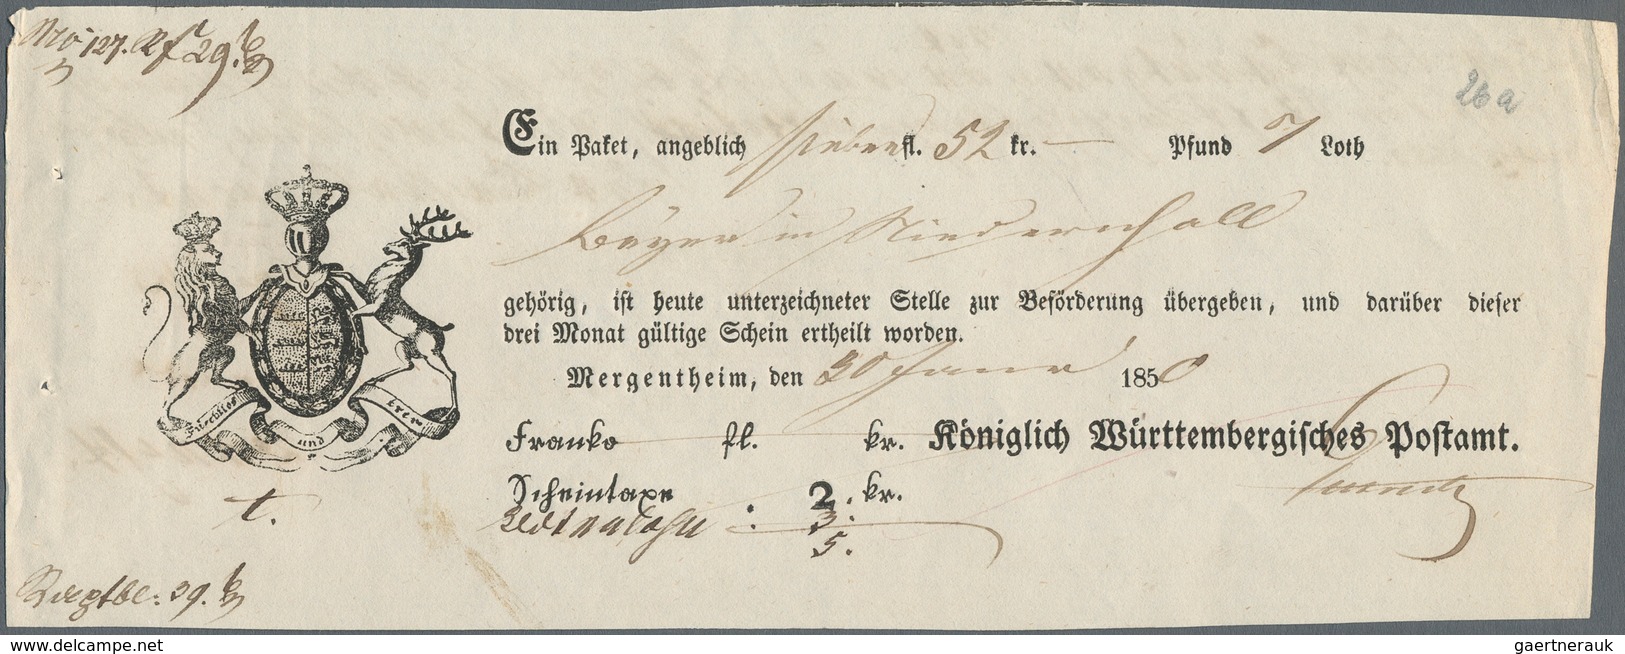 Nro 127.
26 a
Ein Paket, angeblich sieben fl. 52 kr. — Pfund 7 Loth
Beyer in Niedernhall
gehörig, ist heute unterzeichneter Stelle zur Beförderung übergeben, und darüber dieser
drei Monat gültige Schein ertheilt worden.
Mergentheim, den 30 Januar 1850
Furchtlos und trew
Franko fl. kr. Königlich Württembergisches Postamt.
Scheintaxe 2. kr.
: 3.
5.
t.
39.
gaertnerauk